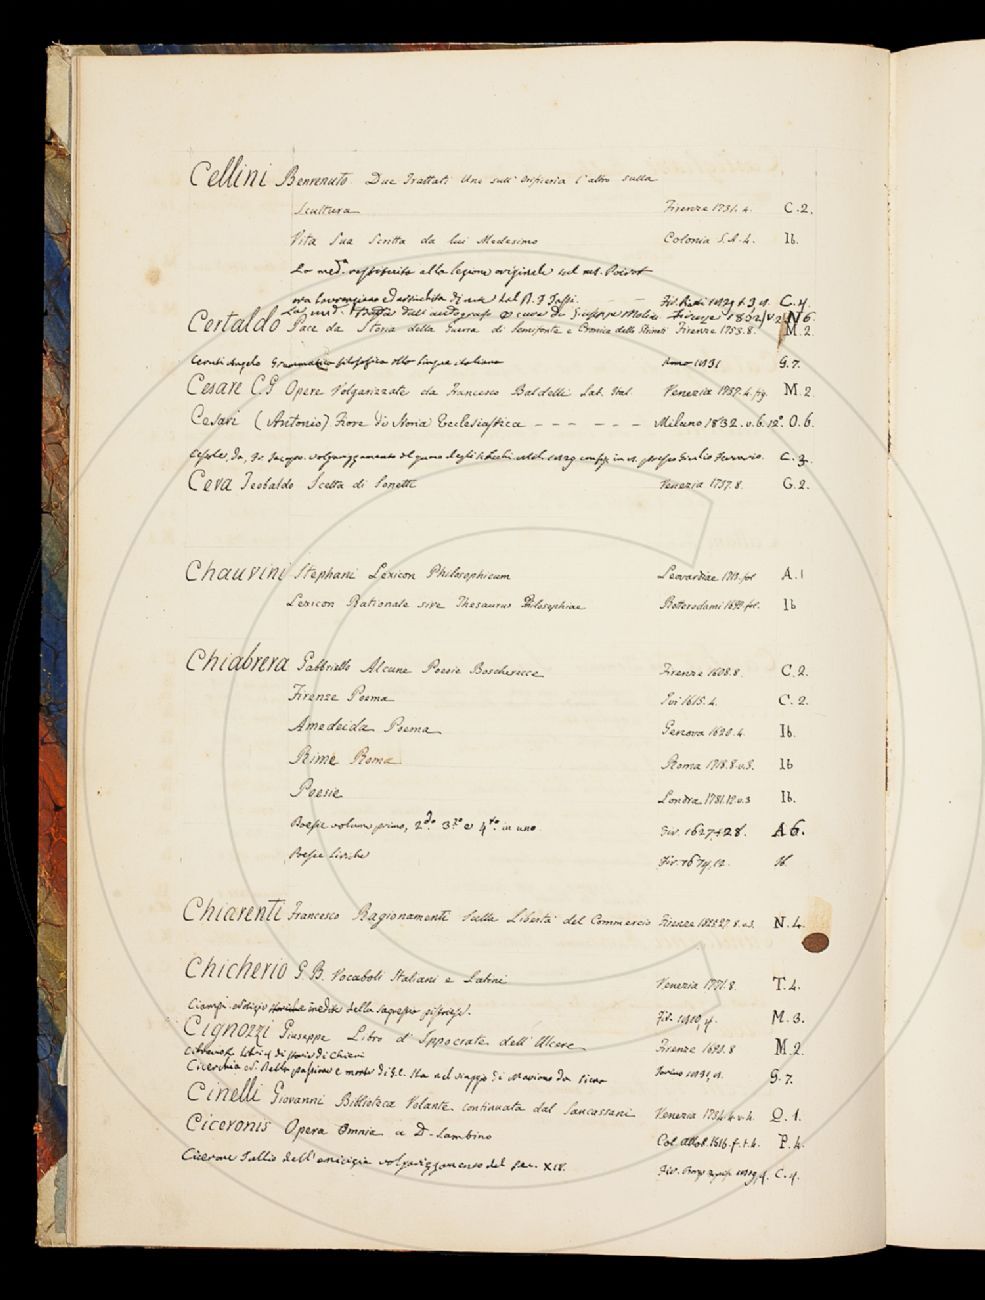 Cellini Benvenuto Due Trattati Uno sull' Orificeria l'altro sulla
Scultura Firenze 1731. 4. C. 2.
Vita Sua Scritta da lui Medesimo Colonia S.A. 4. Ib.
La med.a alla lezione originale sul ms. Poirot
ora ed arricchita di note dal D. F. Tassi. Fir. 1829 t. 3 C. 4.
La med. dall' autografo a cura di Giuseppe Molini Firenze 1832 v 2 N 6.
Certaldo Pace da Storia della Guerra di Semifonte e Cronica delli Firenze 1753. 8. M. 2.
Ceruti Angelo Grammatica filosofica della lingua italiana Anno 1831 G. 7.
Cesare C. G Opere Volgarizzate da Francesco Baldelli Lat. Ital. Venezia 1737. 4. fig. M. 2
Cesari (Antonio) Fiore di Storia Ecclesiastica - - - - - - Milano 1832. v. 6. 12°. O. 6.
Cessole, da, Fr. Jacopo. volgarizzamento del degli Scacchi Mil. 1829 presso Giulio Ferrario. C. 3.
Ceva Teobaldo Scelta di Sonetti Venezia 1737. 8. G. 2.
Chauvini Stephani Lexicon Philosophicum Leovardiae 1713. fol A. 1
Lexicon Rationale sive Thesaurus Philosophiae Rotterodami 1692. fol. Ib
Chiabrera Gabbriello Alcune Poesie Boscherecce Firenze 1608. 8. C. 2.
Firenze Poema Ivi 1615. 4. C. 2.
Amedeida Poema Genova 1620. 4. Ib.
Rime Roma Roma 1718. 8. v. 3. Ib
Poesie Londra 1781. 12 v. 3 Ib.
Poesie volume primo, 2do. 3zo e 4to. in uno Fir. 1627 e 28. A 6.
Poesie liriche Fir. 1674. 12. Ib.
Chiarenti Francesco Ragionamenti sulla Libertà del Commercio Firenze N. 4.
Chicherio G. B. Vocaboli Italiani e Latini Venezia 8. T. 4.
Ciampi notizie inedite della sagrestia pistoiese. Fir. 1810, 4. M. 3.
Cignozzi Giuseppe Libro d'Ippocrate dell'Ulcere Firenze 1690. 8 M. 2.
Cibrario libri 4 di storia di Chieri
Cicerchia Della passione e morte di G. C. Sta nel viaggio di Mariano da Siena Torino G. 7.
Cinelli Giovanni Biblioteca Volante continuata dal Sancassani Venezia 1734. 4. v. 4. Q. 1.
Ciceronis Opera Omnia a D. Lambino Col. Allob. 1616. f. t. 4. P. 4.
Cicerone Tullio dell'amicizia volgarizzamento del sec. XIV. Fir. C. 4.